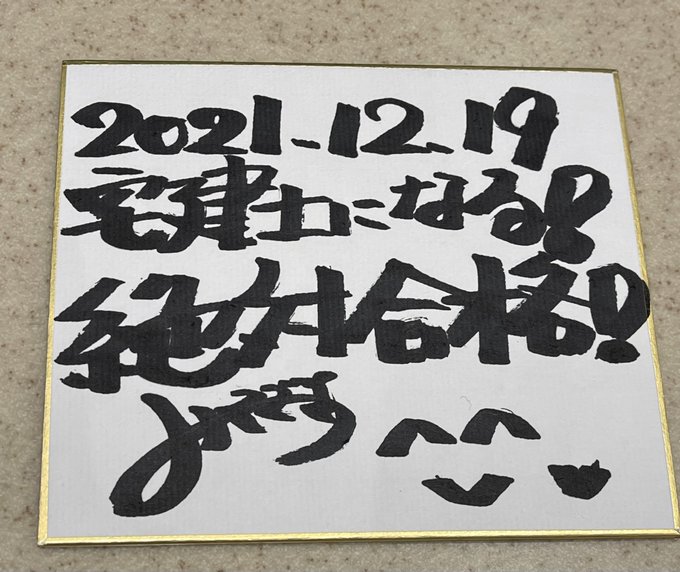 2021.12.19
宅建士になる!
絶対合格!